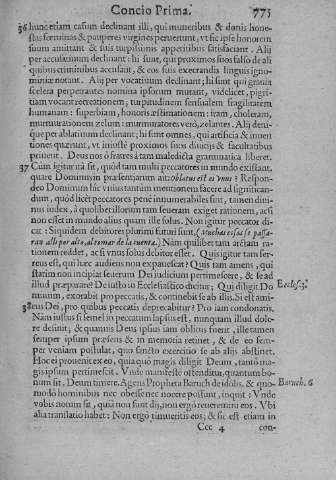 Concio Prima. 775
36 hunc etiam casum declinant illi, qui muneribus & donis hone-
stas feminas & pauperes virgines peruertunt, vt sic ipse honorem
suum amittant & suis turpissimis appetitibus satisfaciant. Alij
per accusatiuum declinant: hi sunt, qui proximos suos falso de ali
quibus criminibus accusant, & eos suis execrandis linguis igno-
miniæ notant. Alij per vocatiuum declinant; hi sunt qui ignota
scelera perperantes nomina ipsorum mutant, videlicet, pigri-
tiam vocant recreationem, turpitudinem sensualem fragilitatem
humanam: superbiam, honoris æstimationem: iram, choleram,
murmurationem zelum: murmuratores verò, zelantes. Alij deni-
que per ablatiuum declinant; hi sunt omnes, qui artificia & inuen
tiones quærunt, vt iniostè proximos suos diuitijs & facultatibus
priuent. Deus nos ô fratres à tam maledicta grammatica liberet.
37 Cum igitur ita sit, quòd tam multi peccatores in mundo existant,
quare Dominus in præsentiarum ait: oblatus est ei vnus? Respon-
deo Dominum hîc vnius tantùm mentionem facere ad significan-
dum, quòd licèt peccatores penè innumerabiles sint, tamen diui-
nus iudex, à quolibet illorum tam seueram exiget rationem, acsi
non esset in mundo alius quam ille solus. Non igitur peccator di-
cat: Siquidem debitores plurimi futuri sunt, (Muchas cosas se passa-
ran alli por alto, al tomar de la cuenta.) Nàm quilibet tam arctam ra-
tionem reddet, acsi vnus solus debitor esset. Quis igitur tam ser-
reus est, qui hæc audiens non expauescat? Quis tam amens, qui
statim non incipiat seuerum Dei iudicium pertimescere, & se ad
illud præparare? De iusto in Ecclesiastico dicitur; Qui diligit Do Eccles. 3.
minum, exorabit pro peccatis, & continebit se ab illis. Si est ami-
38 cus Dei, pro quibus peccatis deprecabitur? Pro iam condonatis.
Nàm iustus si semel in peccatum lapsus est, nunquam illud dole-
re desinit; & quamuis Deus ipsius iam oblitus fuerit, ille tamen
semper ipsum præsens & in memoria retinet, & de eo sem-
per veniam postulat, quo sancto exercitio se ab alijs abstinet.
Hoc ei prouenit ex eo, quia quò magis diligit Deum, tantò ma-
gis ipsum pertimescit. Vnde manifestè ostenditur, quantum bo-
num sit, Deum timere. Agens Propheta Baruch de idolis, & quo- Baruch. 6
modò hominibus nec obesse nec nocere possunt, inquit: Vnde
vobis notum sit, quià non sunt dij, non ergò reueremini eos. Vbi
alia translatio habet: Non ergò timueritis eos; & sic est etiam in
Ccc 4 con-